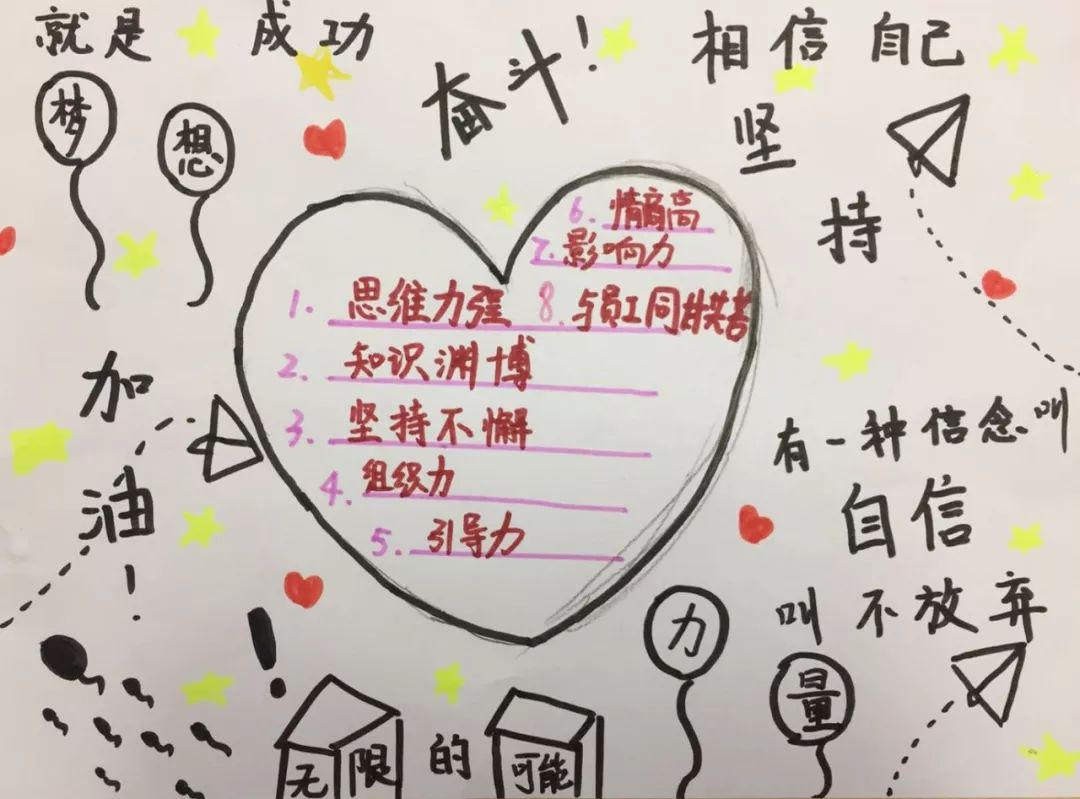 就是 成功
奋斗！
相信自己
梦想
坚持
6. 情商高
7. 影响力
1. 思维力强
8. 与员工同甘共苦
2. 知识渊博
3. 坚持不懈
4. 组织力
5. 引导力
加油！
有一种信念叫
自信
叫不放弃
力量
无限的可能